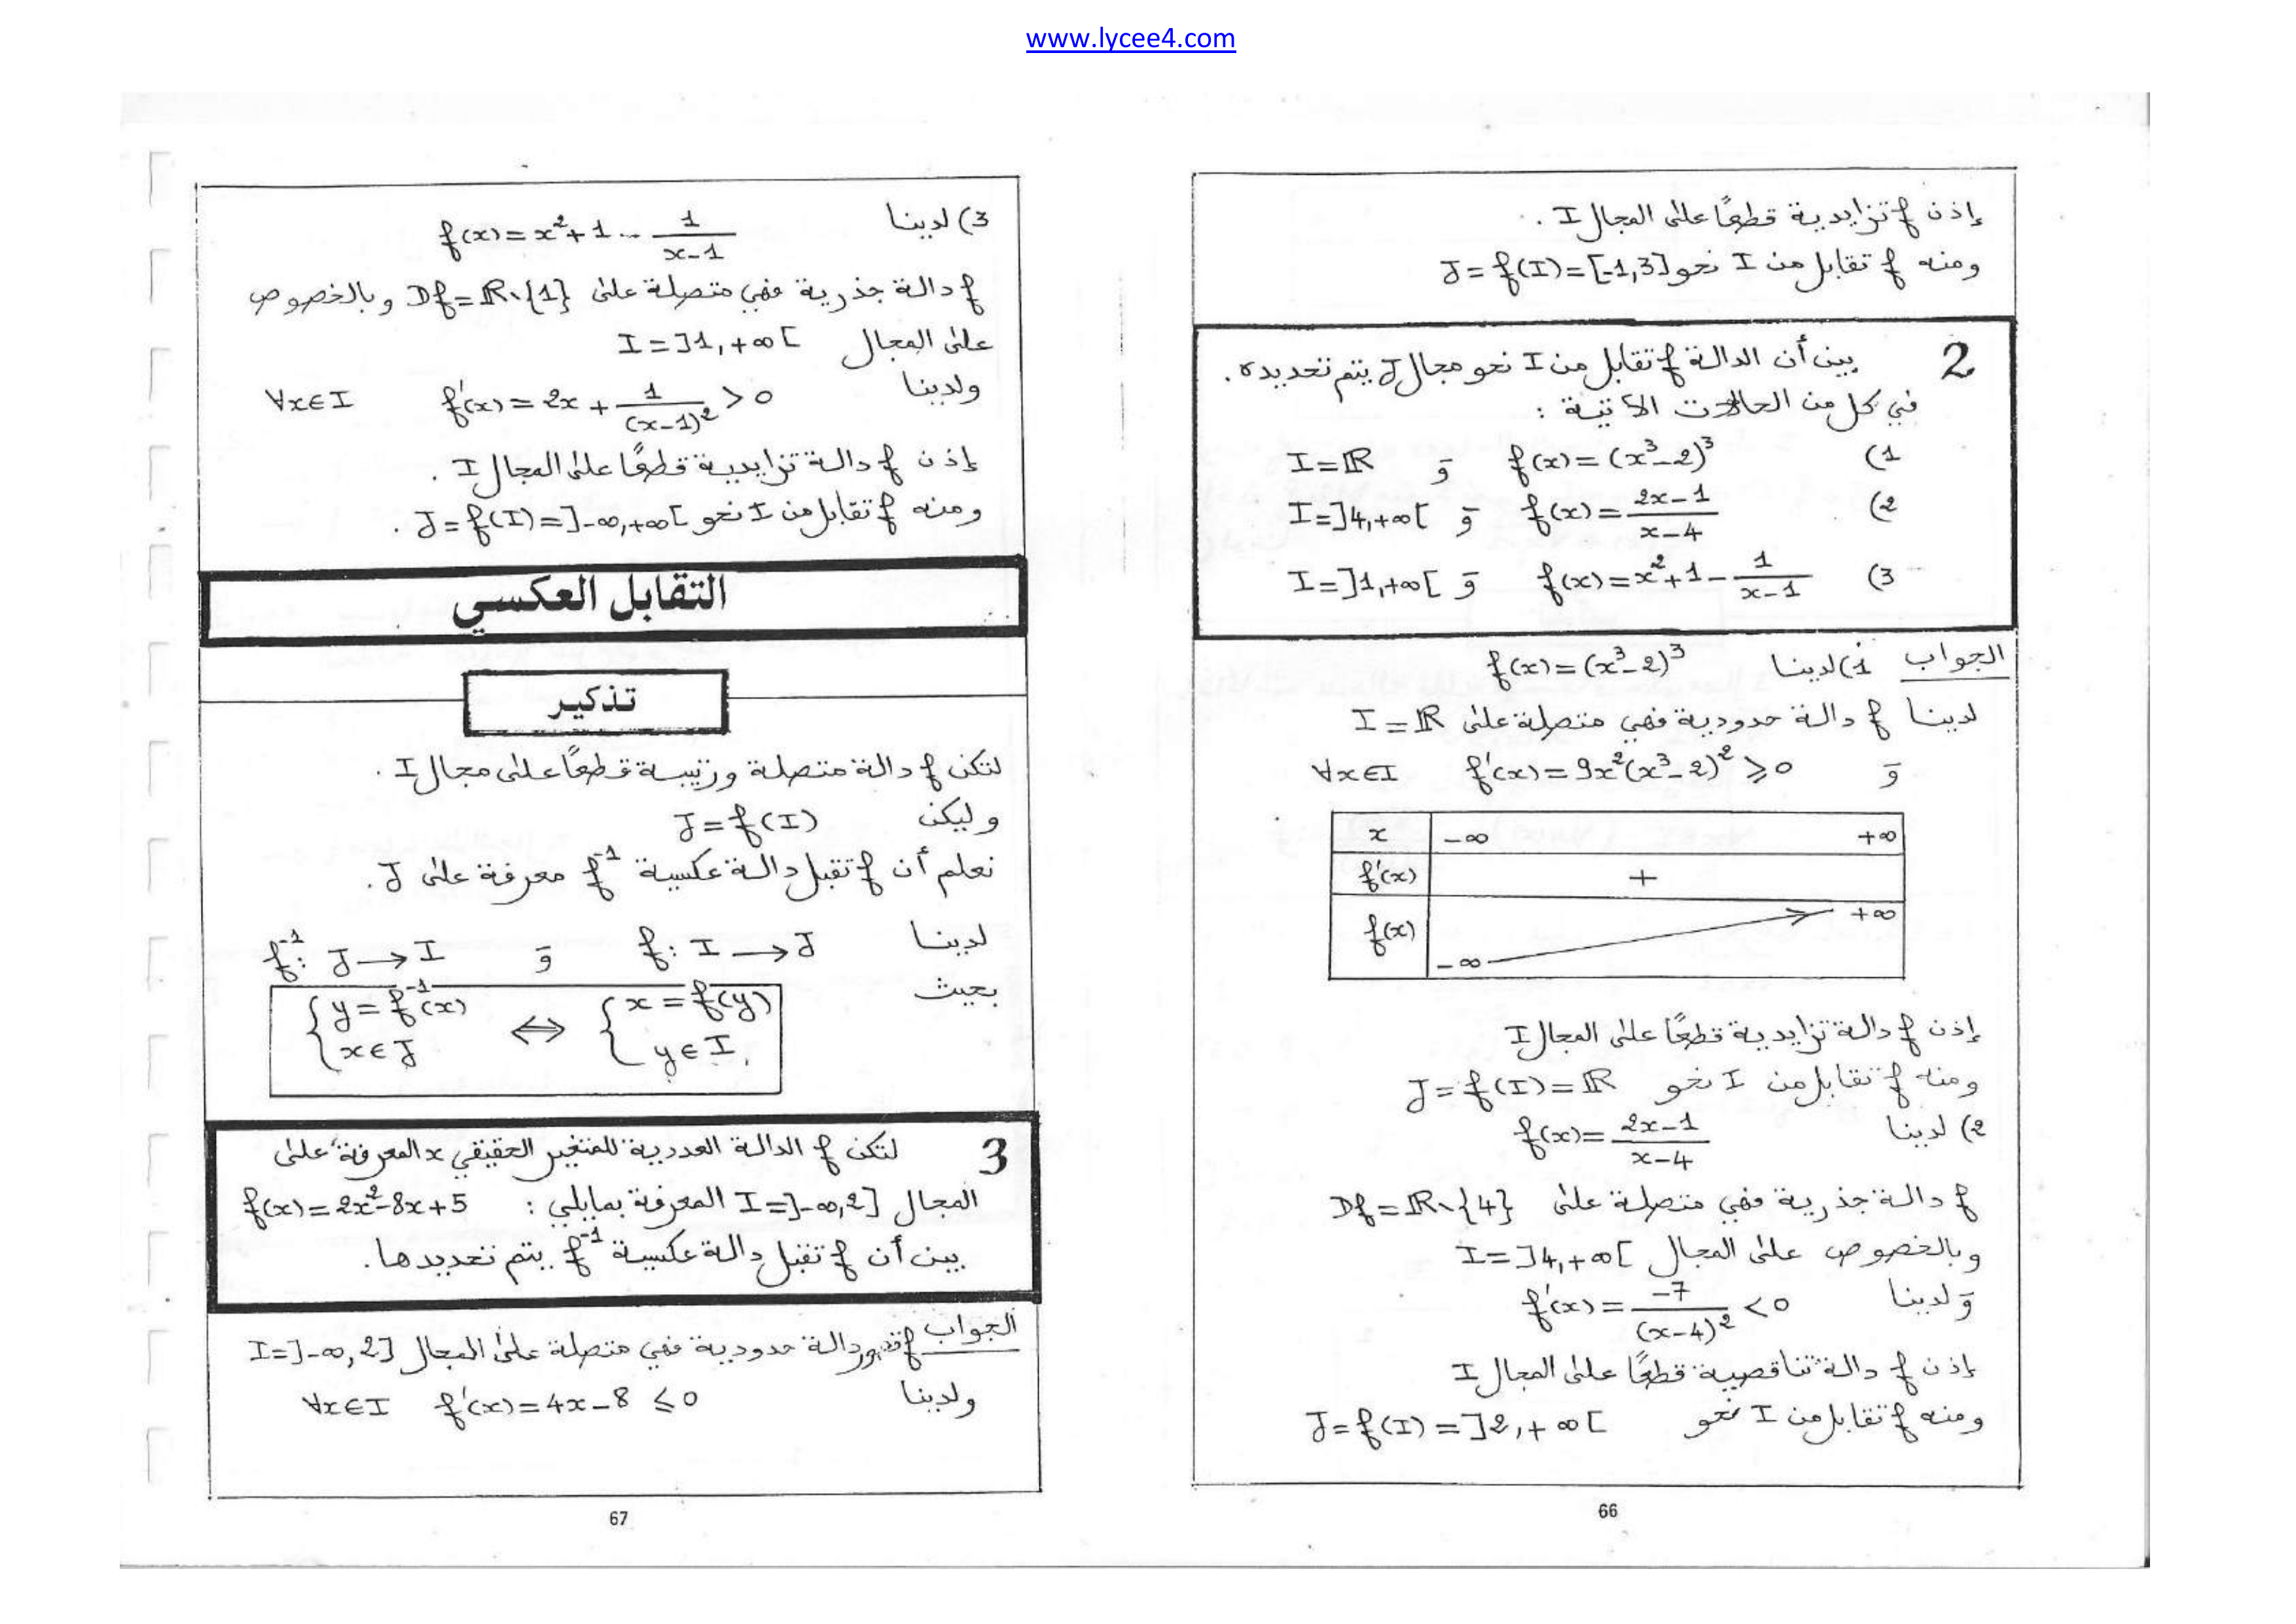 www.lycee4.com
إذن f تزايدية قطعًا على المجال I .
ومنه f تقابل من I نحو J = f(I) = [-1,3]
2 بين أن الدالة f تقابل من I نحو مجال J يتم تحديده .
في كل من الحالات الآتية :
1) f(x) = (x³-2)³ و I = ℝ
2) f(x) = (2x-1)/(x-4) و I = ]4,+∞[
3) f(x) = x²+1 - 1/(x-1) و I = ]1,+∞[
الجواب 1) لدينا f(x) = (x³-2)³
لدينا f دالة حدودية فهي متصلة على I = ℝ
و f'(x) = 9x²(x³-2)² ⩾ 0 ∀x∈I
x -∞ +∞
f'(x) +
f(x) -∞ +∞
إذن f دالة تزايدية قطعًا على المجال I
ومنه f تقابل من I نحو J = f(I) = ℝ
2) لدينا f(x) = (2x-1)/(x-4)
f دالة جذرية فهي متصلة على Df = ℝ\{4}
وبالخصوص على المجال I = ]4,+∞[
و لدينا f'(x) = -7/(x-4)² < 0
إذن f دالة تناقصية قطعًا على المجال I
ومنه f تقابل من I نحو J = f(I) = ]2,+∞[
66
3) لدينا f(x) = x²+1 - 1/(x-1)
f دالة جذرية فهي متصلة على Df = ℝ\{1} وبالخصوص
على المجال I = ]1,+∞[
ولدينا f'(x) = 2x + 1/(x-1)² > 0 ∀x∈I
إذن f دالة تزايدية قطعًا على المجال I .
ومنه f تقابل من I نحو J = f(I) = ]-∞,+∞[ .
التقابل العكسي
تذكير
لتكن f دالة متصلة ورتيبة قطعًا على مجال I .
وليكن J = f(I)
نعلم أن f تقبل دالة عكسية f⁻¹ معرفة على J .
لدينا f : I → J و f⁻¹ : J → I
بحيث { y = f⁻¹(x) ⇔ { x = f(y)
x ∈ J y ∈ I
3 لتكن f الدالة العددية للمتغير الحقيقي x المعرفة على
المجال I = ]-∞,2] المعرفة بمايلي : f(x) = 2x²-8x+5
بين أن f تقبل دالة عكسية f⁻¹ يتم تحديدها .
الجواب f دالة حدودية فهي متصلة على المجال I = ]-∞,2]
ولدينا f'(x) = 4x-8 ⩽ 0 ∀x∈I
67